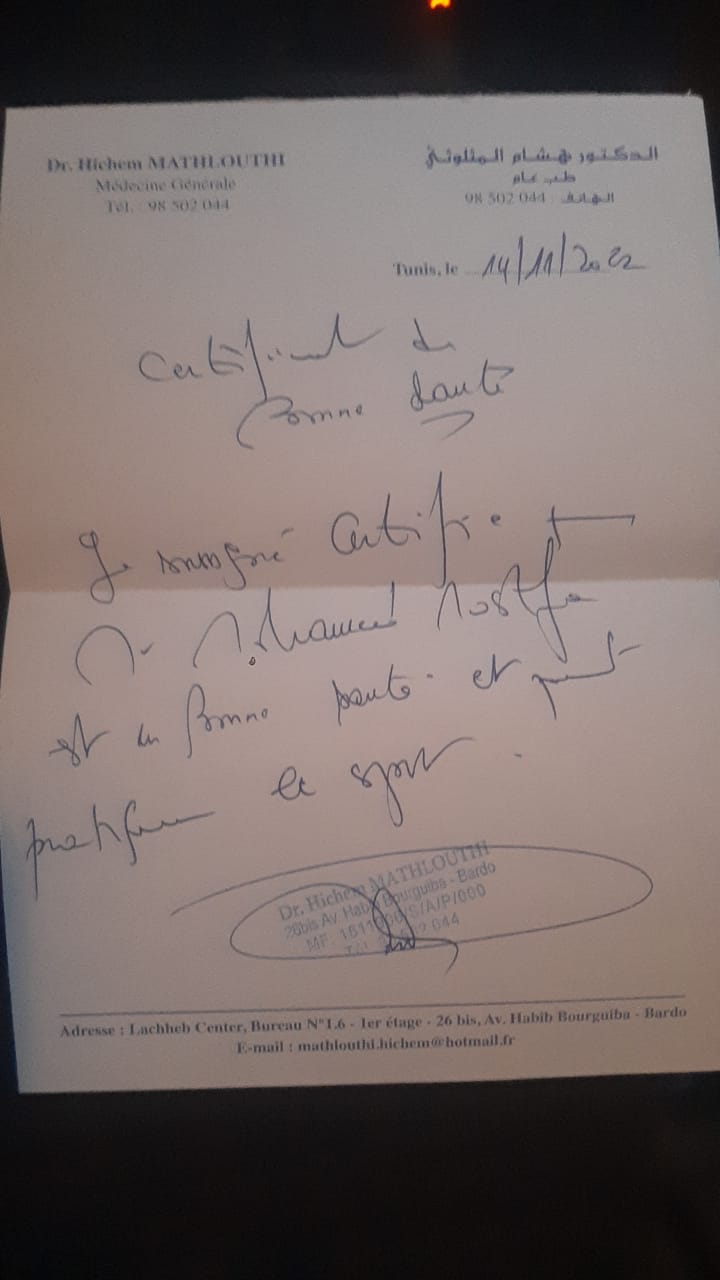 Dr. Hichem MATHLOUTHI
Médecine Générale
Tél. : 98 502 044
الدكتور هشام المثلوثي
طب عام
الهاتف : 98 502 044
Tunis, le 14/11/2022
Certificat de
Bonne Santé
Je soussigné certifie
Mr Mohamed Mostfa
est en bonne santé et peut
pratiquer le sport .
Dr. Hichem MATHLOUTHI
26bis Av. Habib Bourguiba - Bardo
Adresse : Lachheb Center, Bureau N°1.6 - 1er étage - 26 bis, Av. Habib Bourguiba - Bardo
E-mail : mathlouthi.hichem@hotmail.fr